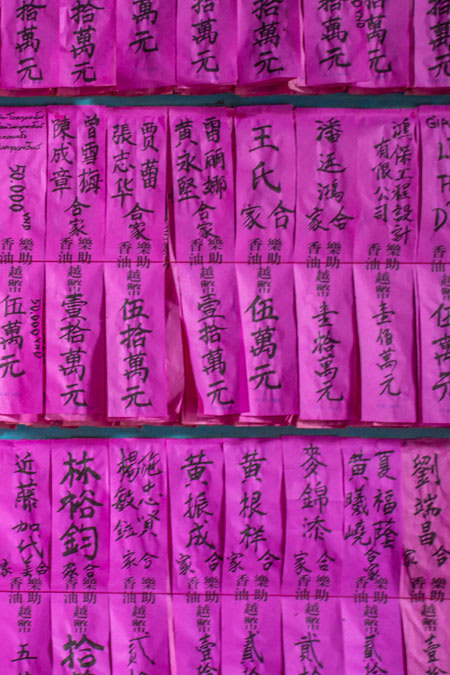 拾萬元
拾萬元
萬元
拾萬元
拾萬元
拾萬
拾萬元
拾萬
50.000 VND
香油
樂助
越幣
伍萬元
50.000 VND
曾雪梅
陳成章
合家
樂助
香油
越幣
壹拾萬元
賈蕾
張志华
合家
樂助
香油
越幣
伍拾萬元
雷丽娜
黄永堅
合家
樂助
香油
越幣
壹拾萬元
王氏
合家
樂助
香油
越幣
伍萬元
潘廷鴻
合家
樂助
香油
越幣
壹拾萬元
鴻保工程設計
有限公司
樂助
香油
越幣
壹佰萬元
樂助
香油
越幣
伍萬元
近藤加代
合家
樂助
香油
越幣
五
林裕鈞
合家
樂助
香油
越幣
拾
楊敏
合家
樂助
香油
越幣
貳
黄振成
合家
樂助
香油
越幣
壹拾
黄根祥
合家
樂助
香油
越幣
貳拾
麥錦添
合家
樂助
香油
越幣
貳拾
夏福蔭
黄曦曉
合家
樂助
香油
越幣
貳拾
劉瑞昌
合家
樂助
香油
越幣
壹拾